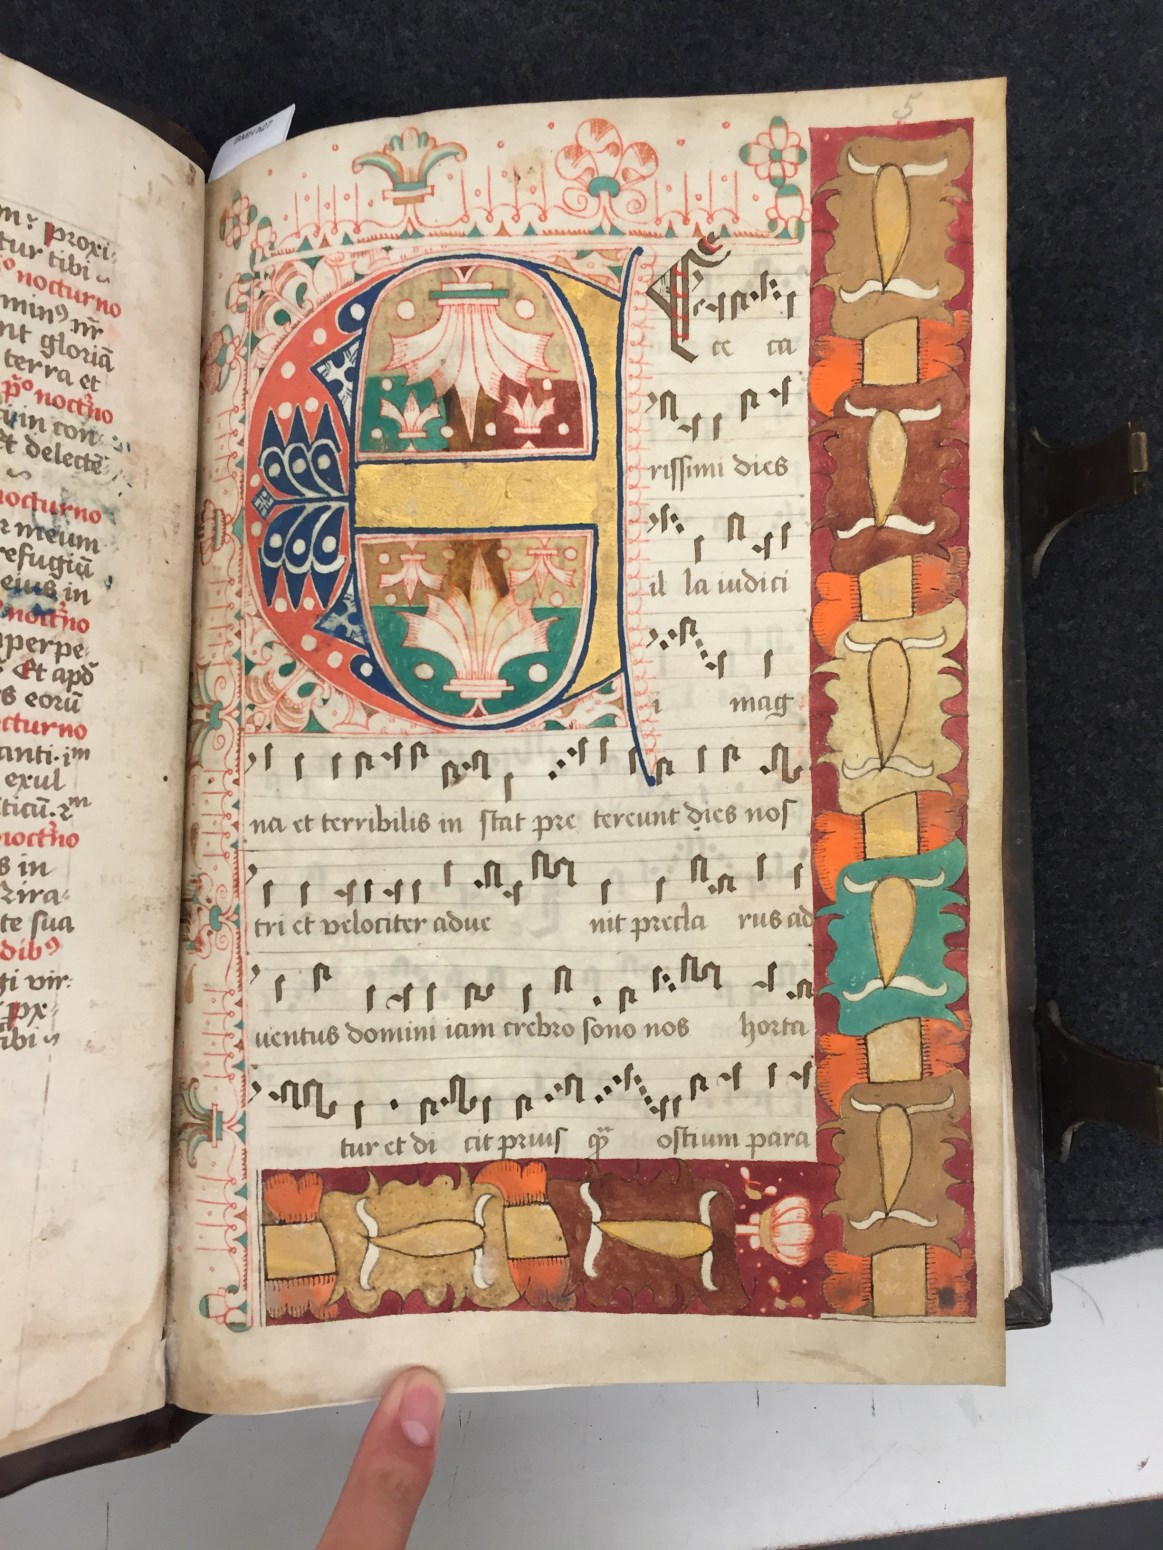 proxi
tur tibi
nocturno
nt gloriā
terra et
noctn̄o
t delecte
nocturno
r meum
refugiū
eius in
noctn̄o
perpe
Et apd̄
s eorū
cturno
exul
noctn̄o
s in
te sua
gi vir
5
E Ec
ce ca
rissimi dies
il la iudici
i mag
na et terribilis in stat pre tereunt dies nos
tri et velociter adue nit precla rus ad
uentus domini iam crebro sono nos horta
tur et di cit prius qͣ ostium para